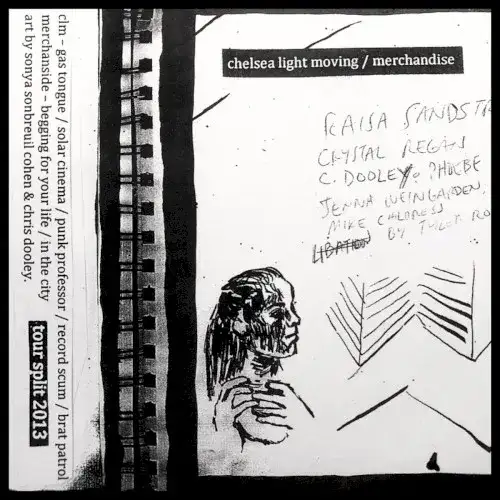 clm – gas tongue / solar cinema / punk professor / record scum / brat patrol
merchanside – begging for your life / in the city
art by sonya sonbreuil cohen & chris dooley.
tour split 2013
chelsea light moving / merchandise
CRYSTAL REGAN
C. DOOLEY & PHOEBE
JENNA WEINGARDEN
MIKE CHILDRESS
BY TYLER RO